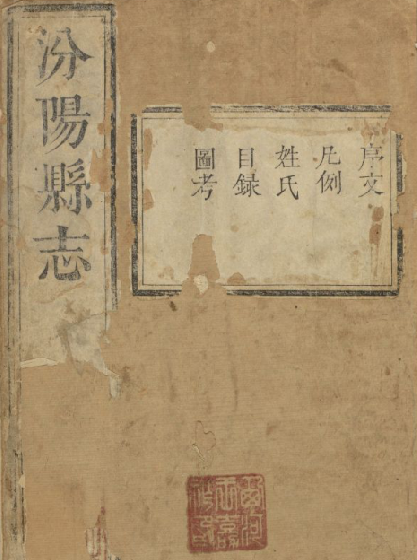 汾陽縣志
序文
凡例
姓氏
目録
圖考